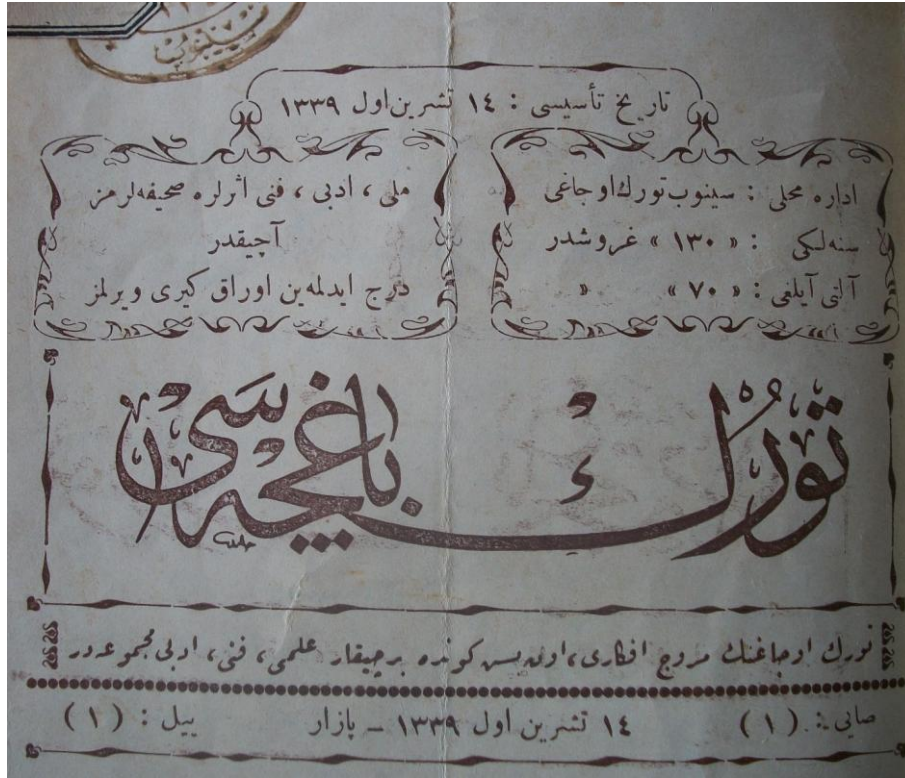 سينوب
تاريخ تأسيسى : ١٤ تشرين اول ١٣٣٩
اداره محلى : سينوب تورك اوجاغى
سنه‌لكى : « ١٣٠ » غروشدر
آلتى آيلغى : « ٧٠ » »
ملى ، ادبى ، فنى اثرلره صحيفه‌لرمز
آچيقدر
درج ايدلمه‌ين اوراق كيرى ويرلمز
تورك باغچه‌سى
تورك اوجاغنك مروج افكارى، اون بش كونده بر چيقار علمى، فنى، ادبى مجموعه‌در
صايى : (١) ١٤ تشرين اول ١٣٣٩ – بازار ييل : (١)